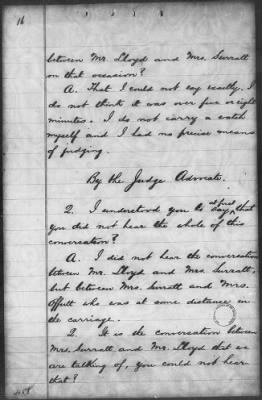 16
between Mr. Lloyd and Mrs. Surratt
on that occasion?
A. That I could not say exactly. I
do not think it was over five or eight
minutes. I do not carry a watch
myself and I had no precise means
of judging.
By the Judge Advocate.
Q. I understood you to say at first that
you did not hear the whole of this
conversation?
A. I did not hear the conversation
between Mr. Lloyd and Mrs. Surratt,
but between Mrs. Surratt and Mrs.
Offutt who was at some distance in
the carriage.
Q. It is the conversation between
Mrs. Surratt and Mr. Lloyd that we
are talking of, you could not hear
that?